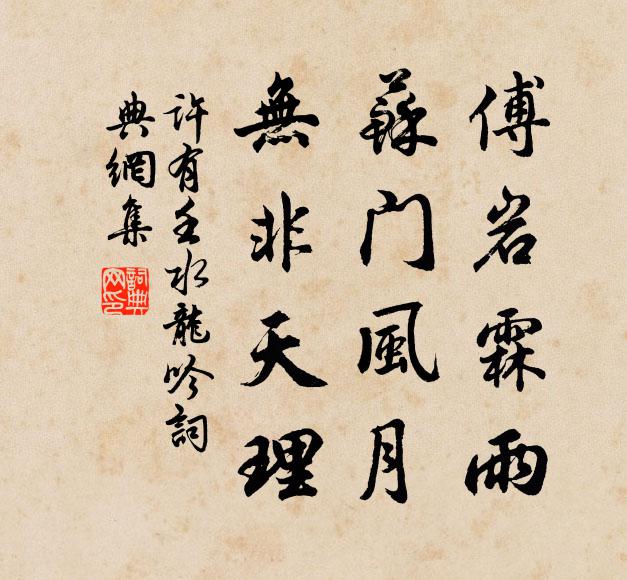 傅岩霖雨
蘇門風月
無非天理
許有壬水龍吟詞
典網集
詞典網印